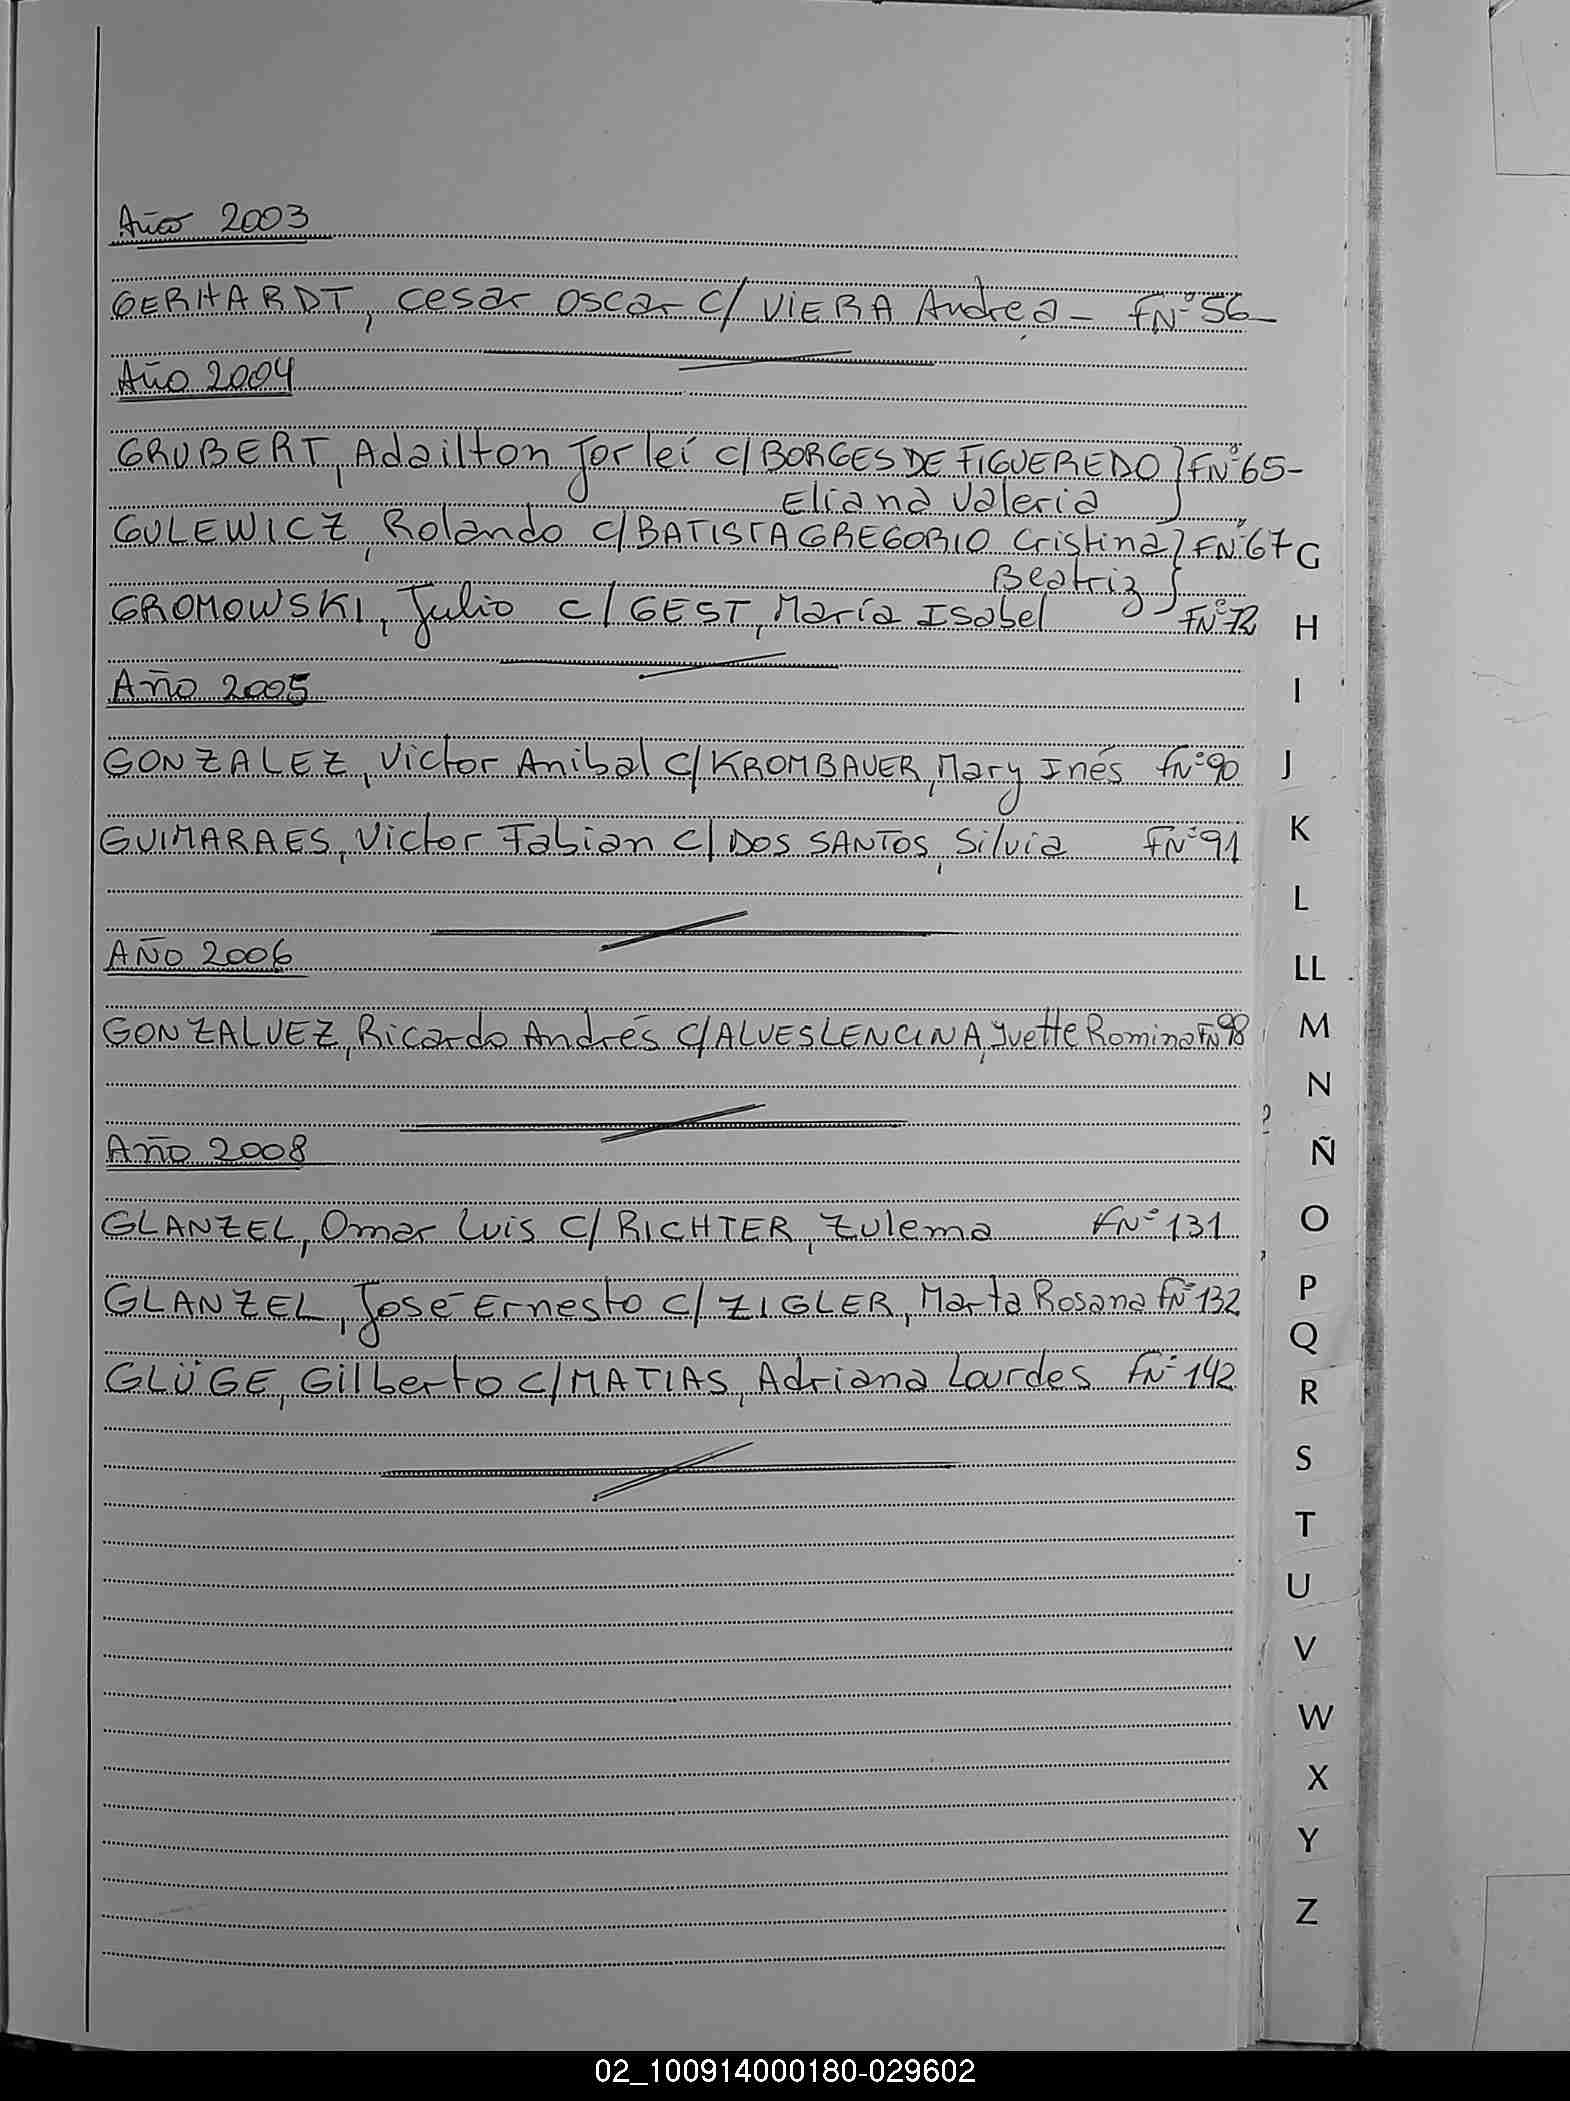 Año 2003
GERHARDT, cesar oscar c/ VIERA Andrea - FNº 56-
Año 2004
GRUBERT, Adailton Jorleí c/ BORGES DE FIGUEREDO } FNº 65-
Eliana Valeria
GULEWICZ, Rolando c/ BATISTA GREGORIO Cristina } FNº 67
Beatriz
GROMOWSKI, Julio c/ GEST, María Isabel FNº 72
Año 2005
GONZALEZ, Victor Anibal c/ KROMBAUER, Mary Inés FNº 90
GUIMARAES, Victor Fabian c/ DOS SANTOS, Silvia FNº 91
AÑO 2006
GONZALVEZ, Ricardo Andrés c/ ALVES LENCINA, Yvette Romina FNº 98
Año 2008
GLANZEL, Omar Luis c/ RICHTER, Zulema FNº 131
GLANZEL, José Ernesto c/ ZIGLER, Marta Rosana FNº 132
GLÜGE, Gilberto c/ MATIAS, Adriana Lourdes FNº 142
G
H
I
J
K
L
LL
M
N
Ñ
O
P
Q
R
S
T
U
V
W
X
Y
Z
02_100914000180-029602